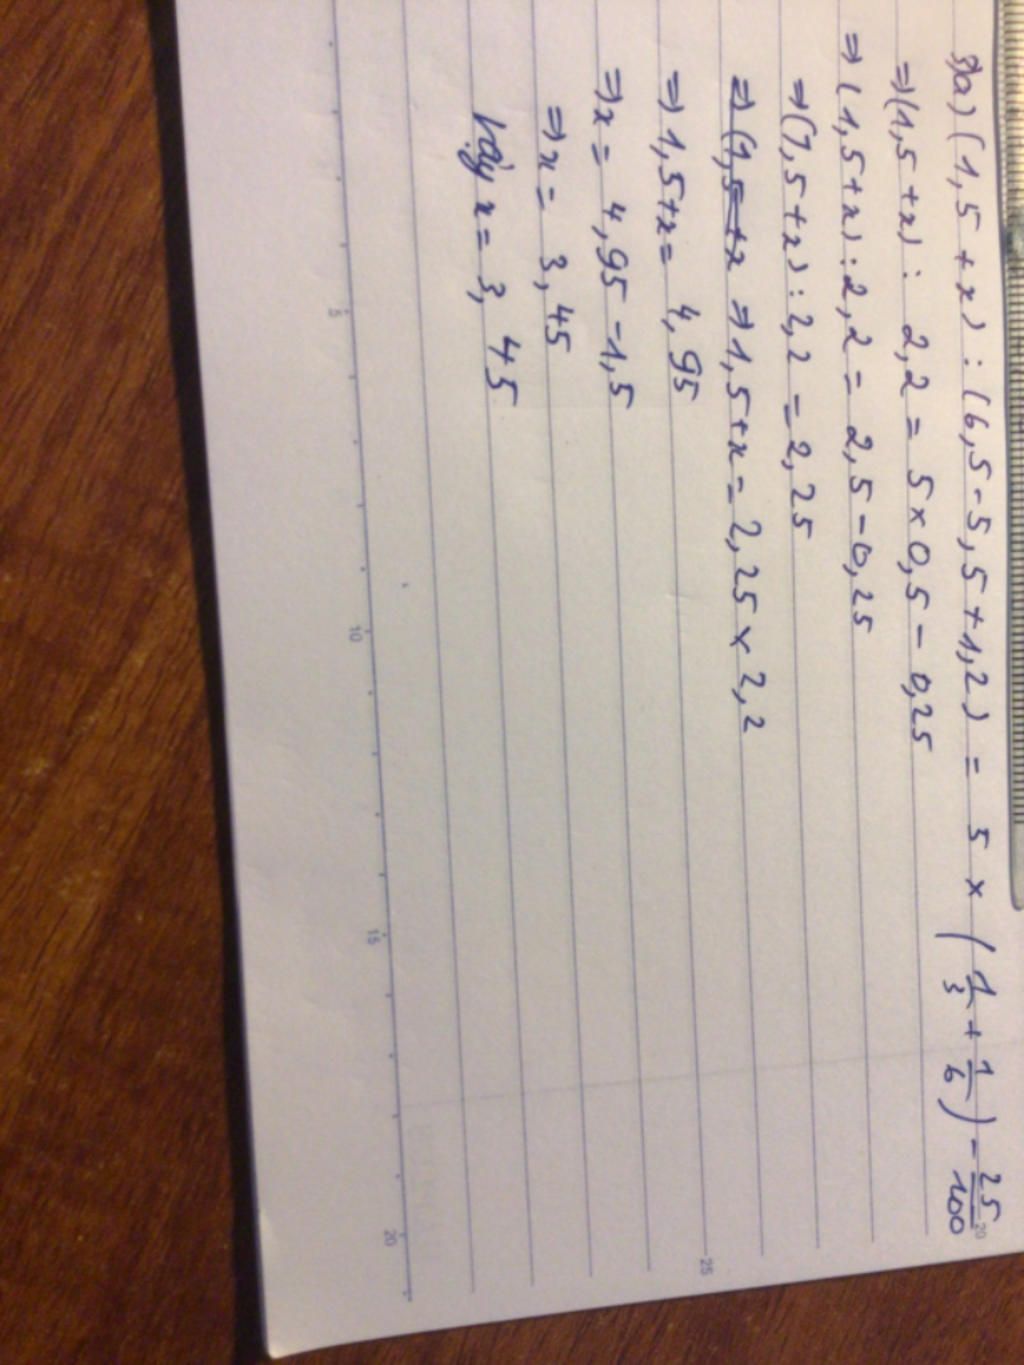 a) (1,5 + x) : (6,5 - 5,5 + 1,2) = 5 × (1/3 + 1/6) - 25/100
⇒ (1,5 + x) : 2,2 = 5 × 0,5 - 0,25
⇒ (1,5 + x) : 2,2 = 2,5 - 0,25
⇒ (1,5 + x) : 2,2 = 2,25
⇒ (1,5 + x ⇒ 1,5 + x = 2,25 × 2,2
⇒ 1,5 + x = 4,95
⇒ x = 4,95 - 1,5
⇒ x = 3,45
Vậy x = 3,45
5
10
15
20
25
20